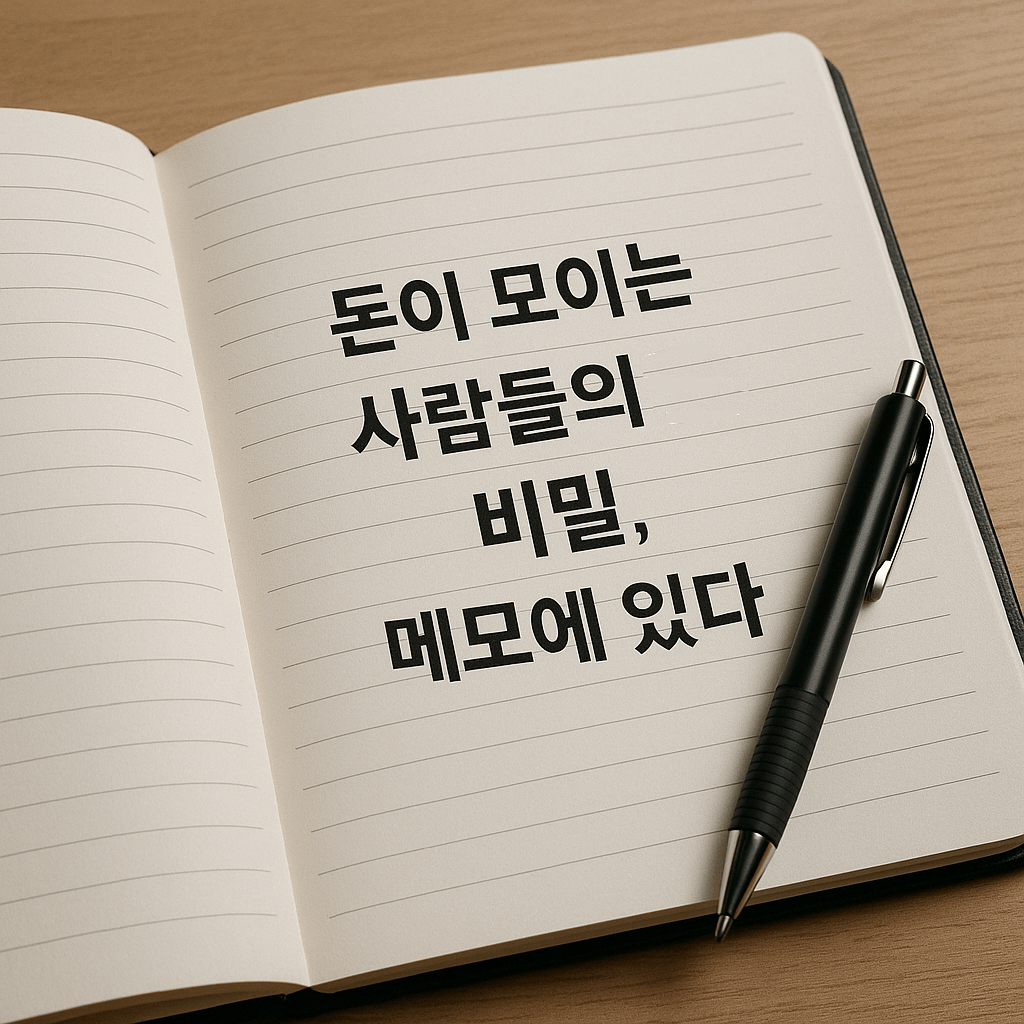 돈이 모이는
사람들의
비밀,
메모에 있다